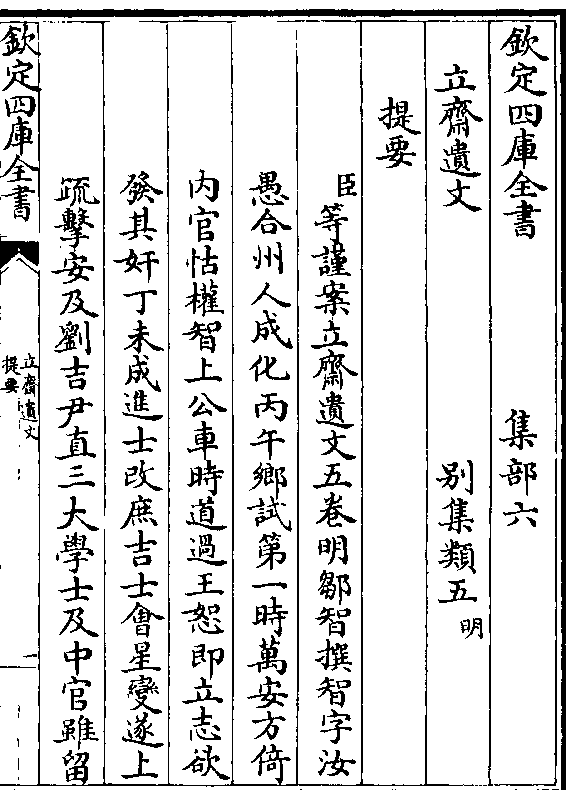 欽定四庫全書　集部六
立齋遺文　别集類五明
提要
臣等謹案立齋遺文五卷明鄒智撰智字汝
愚合州人成化丙午鄉試第一時萬安方倚
内官怙權智上公車時道過王恕即立志欲
發其奸丁未成進士改庶吉士會星變遂上
疏擊安及劉吉尹直三大學士及中官雖留
欽定四庫全書
立齋遺文
提要
一